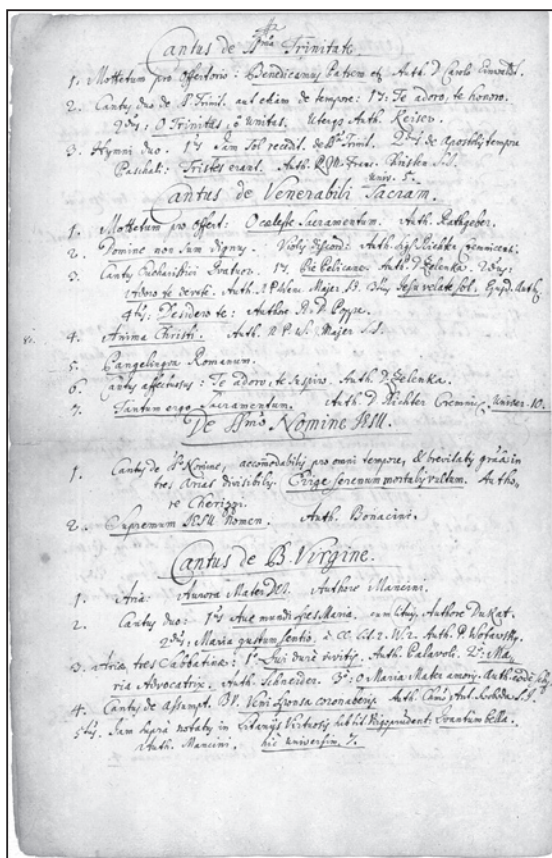 Cantus de SSma Trinitate
1. Mottetum pro Offertorio: Benedicamus Patrem et Auth. D. Caroli
2. Cantus duo de SS. Trinit. aut etiam de tempore: 1us: Te adoro, te honoro.
2dus: O Trinitas, o Unitas. Uterq Auth. Keiser.
3. Hymni duo. 1us Jam Sol recedit. de SS. Trinit. 2dus de Apostolis tempore
Paschali: Tristes erant. Auth. Kristen S.J.
univ. 5.
Cantus de Venerabili Sacram.
1. Mottetum pro Offert: O caeleste Sacramentum. Auth. Rathgeber.
2. Domine non sum dignus. Auth. Richter
3. Cantus Eucharistici Quatuor. 1us Pie Pelicane, Auth. D. Zelenka. 2dus:
Adoro te devote. Auth. R.P. Wenc. Majer S.J. 3tius Jesu velate sol. Ejusd. Auth.
4tus: Desidero te: Authore R.D. Poppe.
4. Anima Christi. Auth. R.P. Majer S.J.
5. Pangelingua Romanum.
6. Cantus affectuosus: Te adoro, te suspiro. Auth. D. Zelenka.
7. Tantum ergo Sacramentum. Auth. D. Richter Univer. 10.
De SSmo Nomine JESU.
1. Cantus de SS. Nomine, accomodabilis pro omni tempore, & brevitatis gratia in
tres Arias divisibilis. Erige serenum mortalis vultum. Autho-
re Cherizzi.
2. Supremum JESU Nomen. Auth. Bonacini.
Cantus de B. Virgine.
1. Aria: Aurora Mater DEI. Authore Mancini.
2. Cantus duo: 1us Ave mundi spes Maria. Authore Dukat.
2dus, Maria gustum sentio. Auth. P. Wotawsky.
3. Ariae tres Auth. Palavoli. 2a: Ma-
ria Advocatrix. Auth. Schneider. 3a: O Maria Mater amoris.
4. Cantus de Assumpt. BV. Veni sponsa coronaberis. Auth.
5tus. Jam supra notatus in Litaniis Quantum bella.
Auth. Mancini. hic universim. 7.